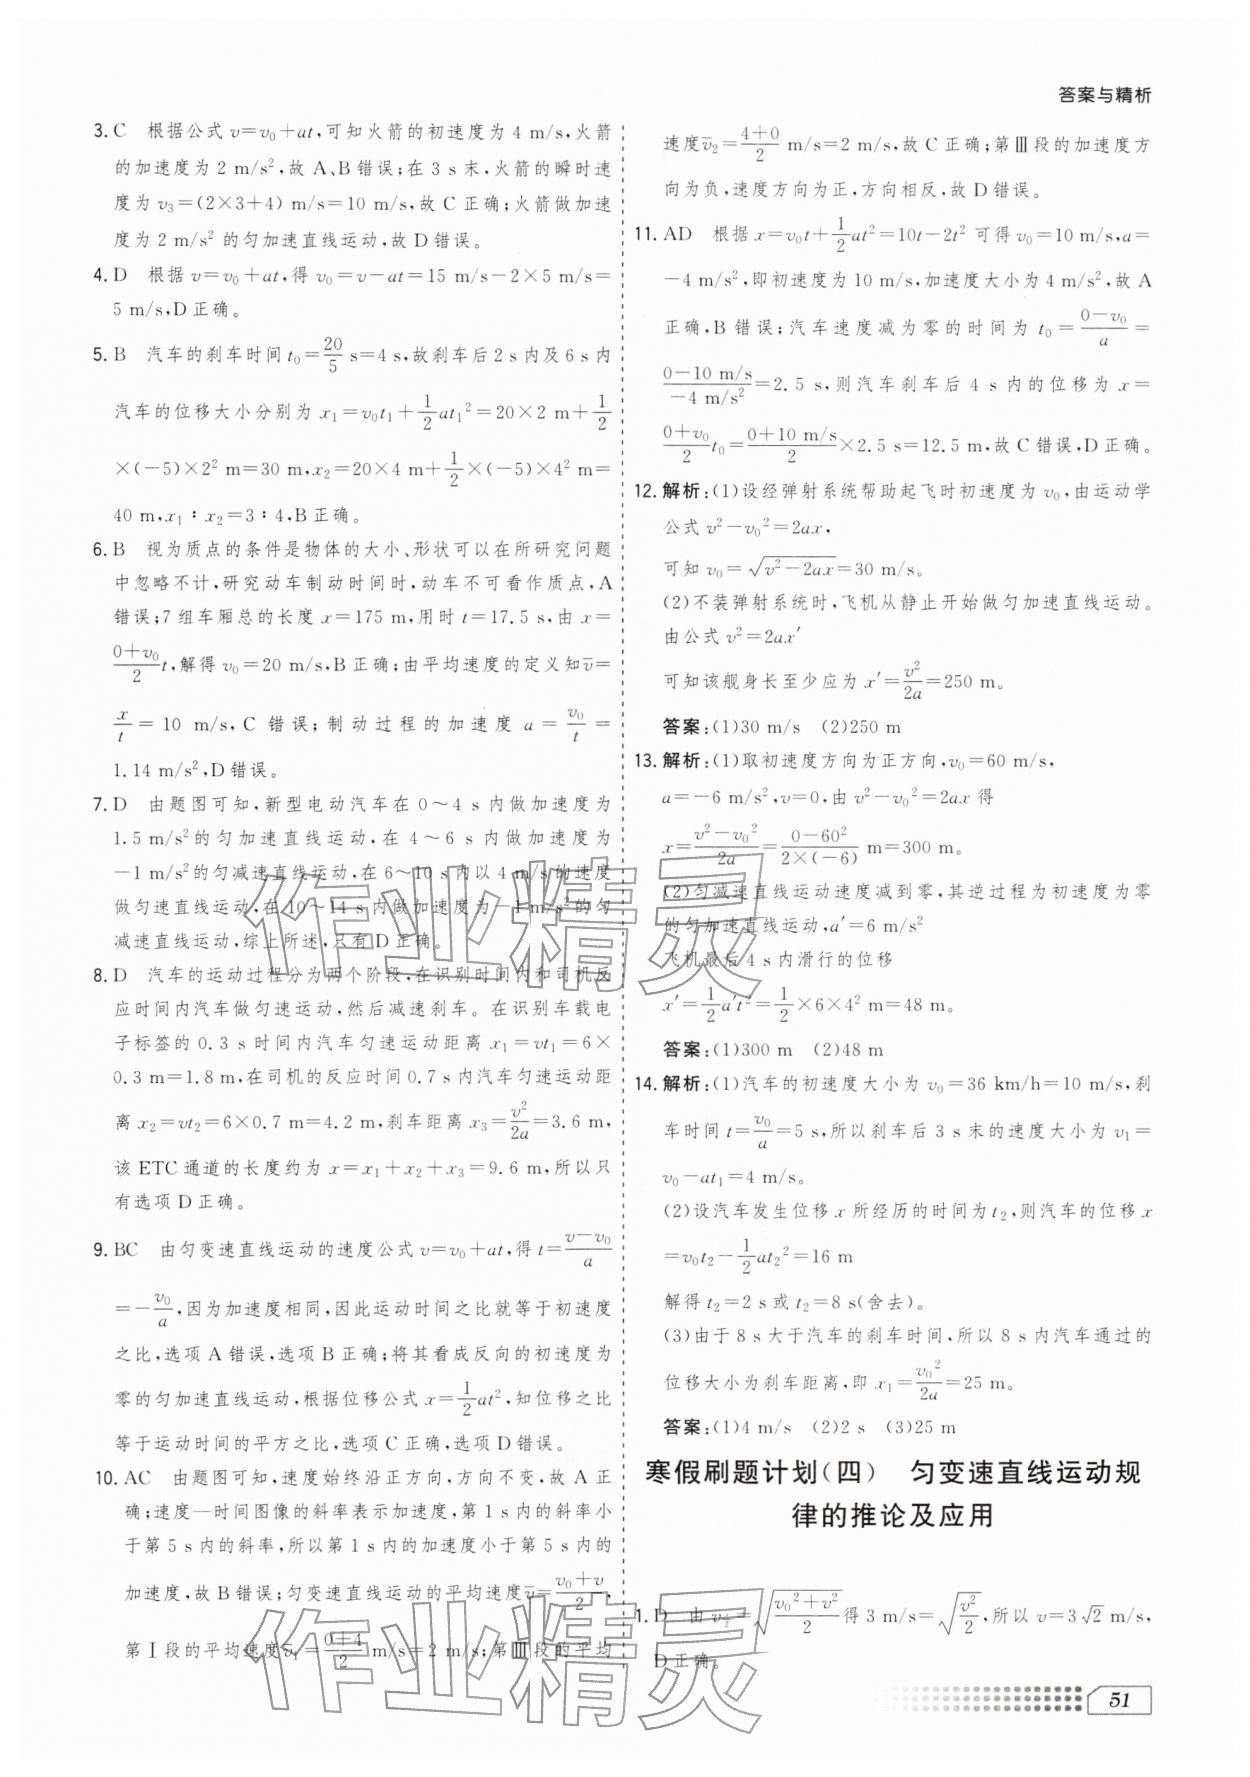 答案与精析
3. C　根据公式 v=v₀+at,可知火箭的初速度为 4 m/s,火箭
的加速度为 2 m/s²,故 A、B 错误;在 3 s 末,火箭的瞬时速
度为 v₃=(2×3+4) m/s=10 m/s,故 C 正确;火箭做加速
度为 2 m/s² 的匀加速直线运动,故 D 错误。
4. D　根据 v=v₀+at,得 v₀=v-at=15 m/s-2×5 m/s=
5 m/s,D 正确。
5. B　汽车的刹车时间 t₀=20/5 s=4 s,故刹车后 2 s 内及 6 s 内
汽车的位移大小分别为 x₁=v₀t₁+1/2at₁²=20×2 m+1/2
×(-5)×2² m=30 m,x₂=20×4 m+1/2×(-5)×4² m=
40 m,x₁∶x₂=3∶4,B 正确。
6. B　视为质点的条件是物体的大小、形状可以在所研究问题
中忽略不计,研究动车制动时间时,动车不可看作质点,A
错误;7 组车厢总的长度 x=175 m,用时 t=17.5 s,由 x=
(0+v₀)/2 t,解得 v₀=20 m/s,B 正确;由平均速度的定义知v̄=
x/t=10 m/s,C 错误;制动过程的加速度 a=v₀/t=
1.14 m/s²,D 错误。
7. D　由题图可知,新型电动汽车在 0～4 s 内做加速度为
1.5 m/s²的匀加速直线运动,在 4～6 s 内做加速度为
-1 m/s²的匀减速直线运动,在 6～10 s 内以 4 m/s 的速度
做匀速直线运动,在 10～14 s 内做加速度为-1 m/s²的匀
减速直线运动,综上所述,只有 D 正确。
8. D　汽车的运动过程分为两个阶段,在识别时间内和司机反
应时间内汽车做匀速运动,然后减速刹车。在识别车载电
子标签的 0.3 s 时间内汽车匀速运动距离 x₁=vt₁=6×
0.3 m=1.8 m,在司机的反应时间 0.7 s 内汽车匀速运动距
离 x₂=vt₂=6×0.7 m=4.2 m,刹车距离 x₃=v²/2a=3.6 m,
该 ETC 通道的长度约为 x=x₁+x₂+x₃=9.6 m,所以只
有选项 D 正确。
9. BC　由匀变速直线运动的速度公式 v=v₀+at,得 t=(v-v₀)/a
=-v₀/a,因为加速度相同,因此运动时间之比就等于初速度
之比,选项 A 错误,选项 B 正确;将其看成反向的初速度为
零的匀加速直线运动,根据位移公式 x=1/2at²,知位移之比
等于运动时间的平方之比,选项 C 正确,选项 D 错误。
10. AC　由题图可知,速度始终沿正方向,方向不变,故 A 正
确;速度—时间图像的斜率表示加速度,第 1 s 内的斜率小
于第 5 s 内的斜率,所以第 1 s 内的加速度小于第 5 s 内的
加速度,故 B 错误;匀变速直线运动的平均速度v̄=(v₀+v)/2,
第Ⅰ段的平均速度v̄₁=(0+4)/2 m/s=2 m/s;第Ⅲ段的平均
速度v̄₂=(4+0)/2 m/s=2 m/s,故 C 正确;第Ⅲ段的加速度方
向为负,速度方向为正,方向相反,故 D 错误。
11. AD　根据 x=v₀t+1/2at²=10t-2t² 可得 v₀=10 m/s,a=
-4 m/s²,即初速度为 10 m/s,加速度大小为 4 m/s²,故 A
正确,B 错误;汽车速度减为零的时间为 t₀=(0-v₀)/a=
(0-10 m/s)/(-4 m/s²)=2.5 s,则汽车刹车后 4 s 内的位移为 x=
(0+v₀)/2 t₀=(0+10 m/s)/2×2.5 s=12.5 m,故 C 错误,D 正确。
12. 解析:(1)设经弹射系统帮助起飞时初速度为 v₀,由运动学
公式 v²-v₀²=2ax,
可知 v₀=√(v²-2ax)=30 m/s。
(2)不装弹射系统时,飞机从静止开始做匀加速直线运动。
由公式 v²=2ax′
可知该舰身长至少应为 x′=v²/2a=250 m。
答案:(1)30 m/s　(2)250 m
13. 解析:(1)取初速度方向为正方向,v₀=60 m/s,
a=-6 m/s²,v=0,由 v²-v₀²=2ax 得
x=(v²-v₀²)/2a=(0-60²)/(2×(-6)) m=300 m。
(2)匀减速直线运动速度减到零,其逆过程为初速度为零
的匀加速直线运动,a′=6 m/s²
飞机最后 4 s 内滑行的位移
x′=1/2a′t²=1/2×6×4² m=48 m。
答案:(1)300 m　(2)48 m
14. 解析:(1)汽车的初速度大小为 v₀=36 km/h=10 m/s,刹
车时间 t=v₀/a=5 s,所以刹车后 3 s 末的速度大小为 v₁=
v₀-at₁=4 m/s。
(2)设汽车发生位移 x 所经历的时间为 t₂,则汽车的位移 x
=v₀t₂-1/2at₂²=16 m
解得 t₂=2 s 或 t₂=8 s(舍去)。
(3)由于 8 s 大于汽车的刹车时间,所以 8 s 内汽车通过的
位移大小为刹车距离,即 x₁=v₀²/2a=25 m。
答案:(1)4 m/s　(2)2 s　(3)25 m
寒假刷题计划(四)　匀变速直线运动规
律的推论及应用
1. D　由 v_{x/2}=√((v₀²+v²)/2)得 3 m/s=√(v²/2),所以 v=3√2 m/s,
D 正确。
51
作业精灵
作业精灵